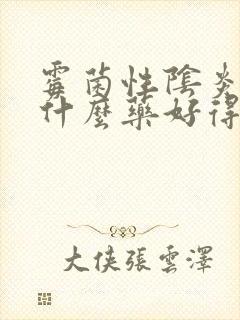 霉菌性陰炎
什麼藥好得
大侠張雲澤